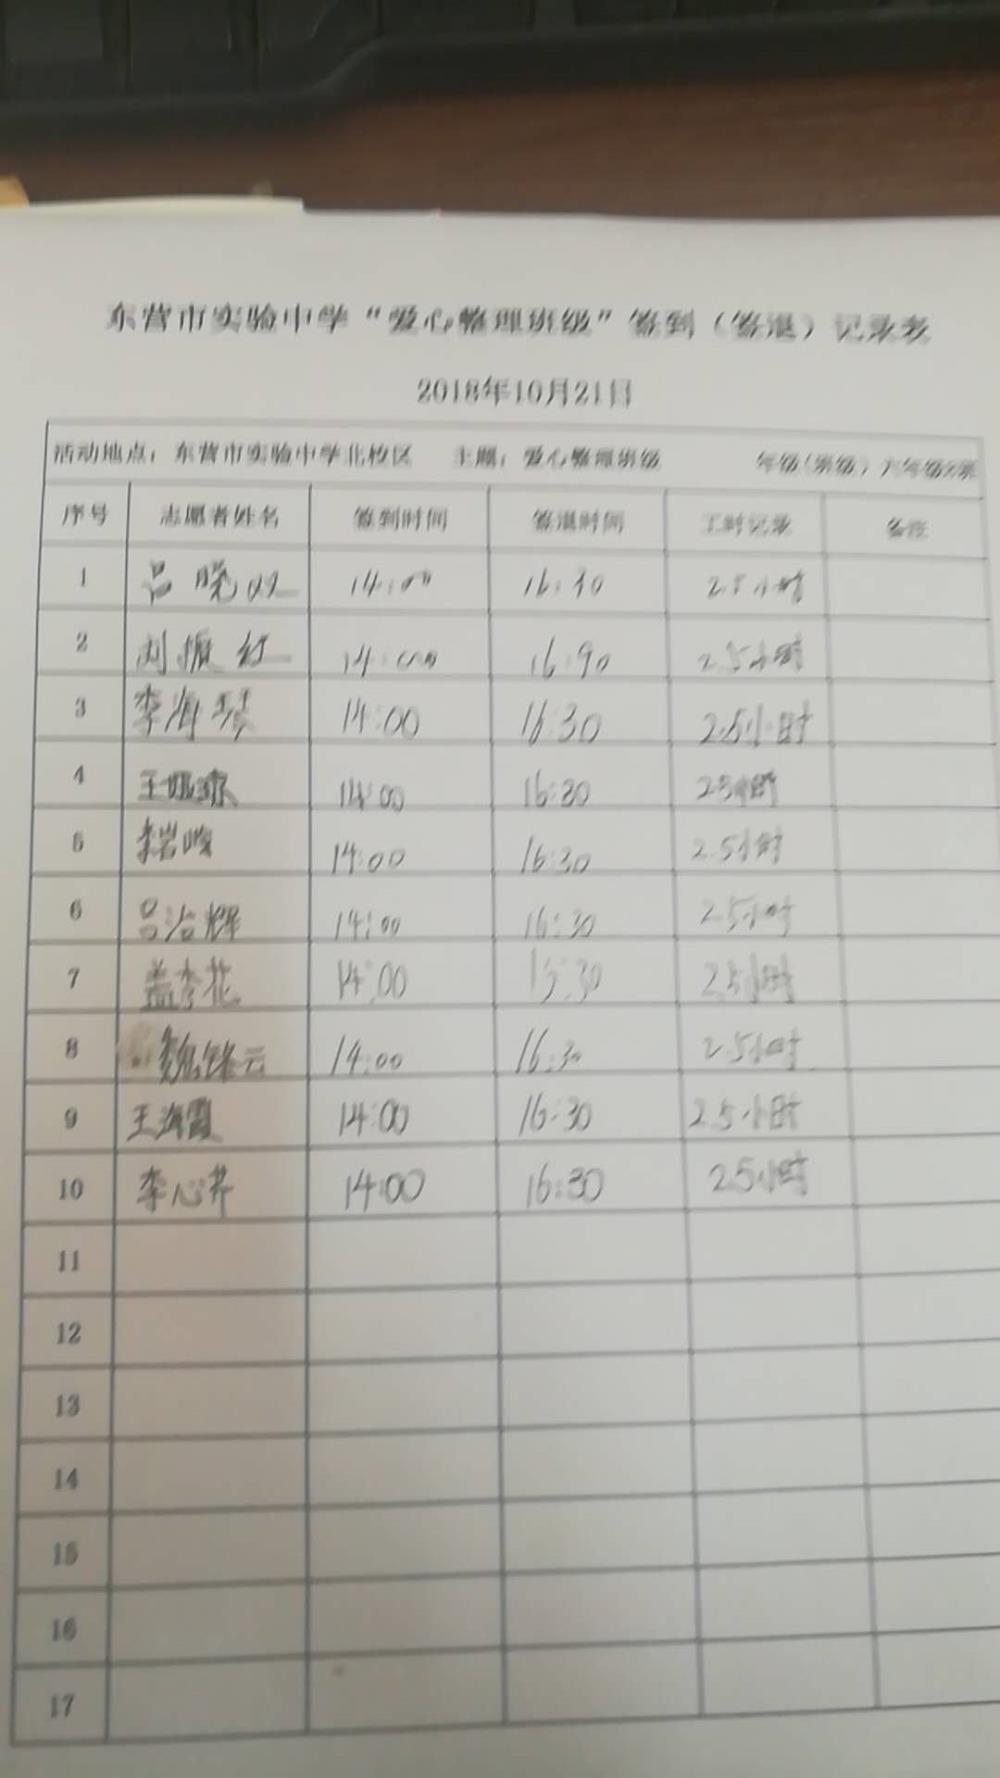 东营市实验中学“爱心整理班级”签到（签退）记录表
2018年10月21日
活动地点：东营市实验中学北校区 主题：爱心整理班级 年级（班级）六年级
序号 志愿者姓名 签到时间 签退时间 工时记录 备注
1 吕晓双 14:00 16:30 2.5小时
2 刘振红 14:00 16:90 2.5小时
3 李海琴 14:00 16:30 2.5小时
4 14:00 16:30 2.5小时
5 14:00 16:30 2.5小时
6 吕治辉 14:00 16:30 2.5小时
7 盖李花 14:00 2.5小时
8 魏锋云 14:00 16:30 2.5小时
9 王海霞 14:00 16:30 2.5小时
10 李心芹 14:00 16:30 2.5小时
11
12
13
14
15
16
17